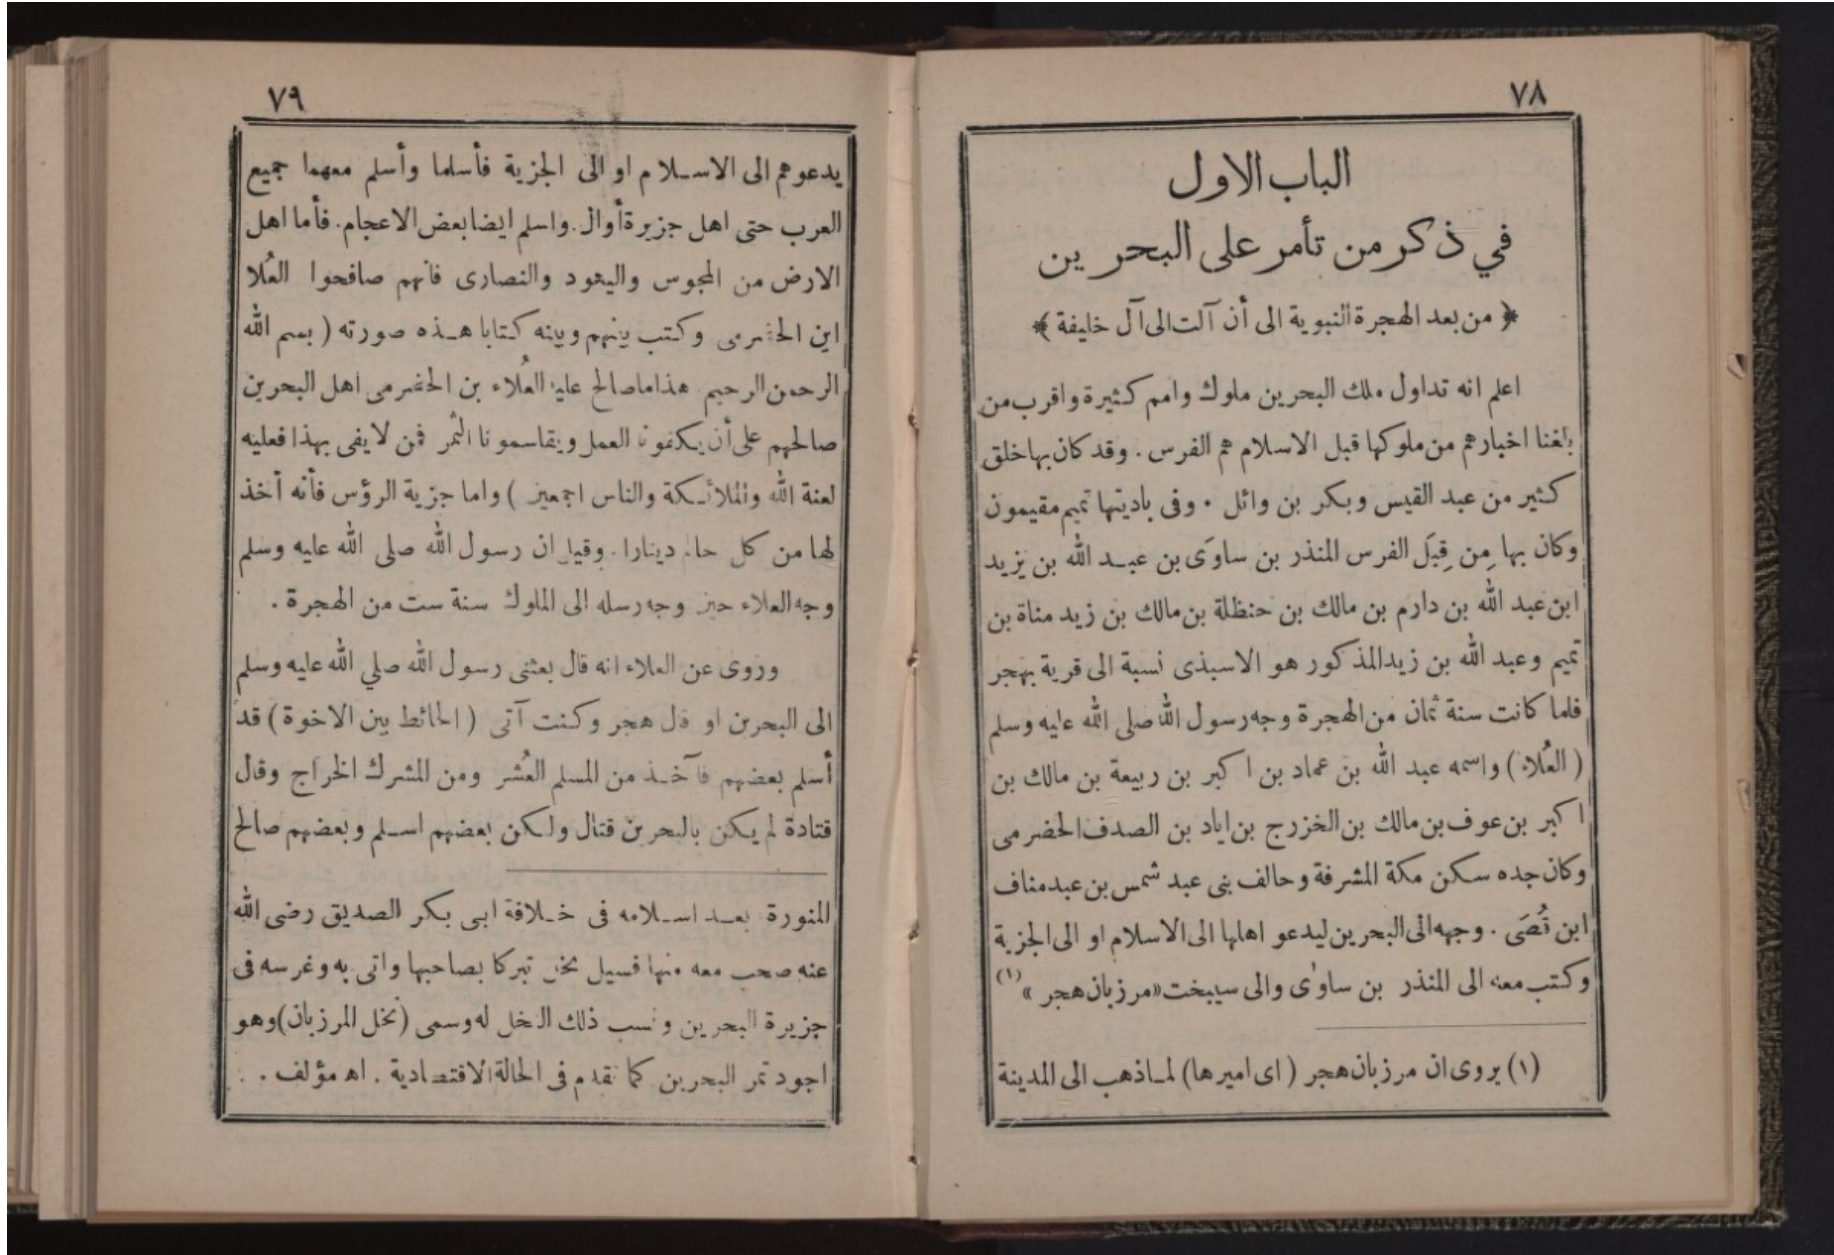 ٧٨
الباب الاول
في ذكر من تأمر على البحرين
﴿ من بعد الهجرة النبوية الى أن آلت الى آل خليفة ﴾
اعلم انه تداول ملك البحرين ملوك وامم كثيرة واقرب من
بلغنا اخبارهم من ملوكها قبل الاسلام هم الفرس . وقد كان بها خلق
كثير من عبد القيس وبكر بن وائل . وفى باديتها تميم مقيمون
وكان بها مِن قِبَل الفرس المنذر بن ساوَى بن عبد الله بن يزيد
ابن عبد الله بن دارم بن مالك بن حنظلة بن مالك بن زيد مناة بن
تميم وعبد الله بن زيد المذكور هو الاسبذى نسبة الى قرية بهجر
فلما كانت سنة ثمان من الهجرة وجه رسول الله صلى الله عليه وسلم
( العُلاء ) واسمه عبد الله بن عماد بن اكبر بن ربيعة بن مالك بن
اكبر بن عوف بن مالك بن الخزرج بن اياد بن الصدف الحضرمى
وكان جده سكن مكة المشرفة وحالف بنى عبد شمس بن عبد مناف
ابن قُصَى . وجهه الى البحرين ليدعو اهلها الى الاسلام او الى الجزية
وكتب معه الى المنذر بن ساوٰى والى سيبخت «مرزبان هجر » (١)
(١) يروى ان مرزبان هجر ( اى اميرها ) لما ذهب الى المدينة
٧٩
يدعوهم الى الاسلام او الى الجزية فأسلما وأسلم معهما جميع
العرب حتى اهل جزيرة أوال . واسلم ايضا بعض الاعجام . فأما اهل
الارض من المجوس واليهود والنصارى فانهم صافحوا العُلا
ابن الحضرمى وكتب بينهم وبينه كتابا هذه صورته ( بسم الله
الرحمن الرحيم هذا ما صالح عليه العُلاء بن الحضرمى اهل البحرين
صالحهم على أن يكفونا العمل ويقاسمونا الثمر فمن لا يفى بهذا فعليه
لعنة الله والملائكة والناس اجمعين ) واما جزية الرؤس فأنه أخذ
لها من كل حالم دينارا . وقيل ان رسول الله صلى الله عليه وسلم
وجه العلاء حين وجه رسله الى الملوك سنة ست من الهجرة .
وروى عن العلاء انه قال بعثنى رسول الله صلي الله عليه وسلم
الى البحرين او قال هجر وكنت آتى ( الحائط بين الاخوة ) قد
أسلم بعضهم فآخذ من المسلم العُشر ومن المشرك الخراج وقال
قتادة لم يكن بالبحرين قتال ولكن بعضهم اسلم وبعضهم صالح
المنورة بعد اسلامه فى خلافة ابى بكر الصديق رضى الله
عنه صحب معه منها فسيل نخل تبركا بصاحبها واتى به وغرسه فى
جزيرة البحرين ونسب ذلك النخل له وسمى ( نخل المرزبان ) وهو
اجود تمر البحرين كما تقدم فى الحالة الاقتصادية . اه مؤلف .